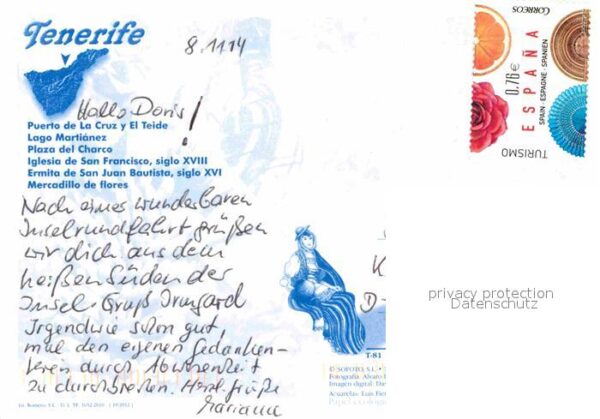 Tenerife
8.11.14
Hallo Doris!
Puerto de La Cruz y El Teide
Lago Martiánez
Plaza del Charco
Iglesia de San Francisco, siglo XVIII
Ermita de San Juan Bautista, siglo XVI
Mercadillo de flores
Nach einer wunderbaren
Inselrundfahrt grüßen
wir dich aus dem
heißen Süden der
Insel. Gruß Irmgard
Irgendwie schon gut,
mal den eigenen Gedanken-
verein durch Abwesenheit
zu durchbrechen. Herzl. Grüße
Marianne
CORREOS
0,76€
ESPAÑA
SPAIN · ESPAGNE · SPANIEN
TURISMO
K
D-
privacy protection
Datenschutz
T-81
Fotografía
Imagen digital:
Acuarelas: Luis